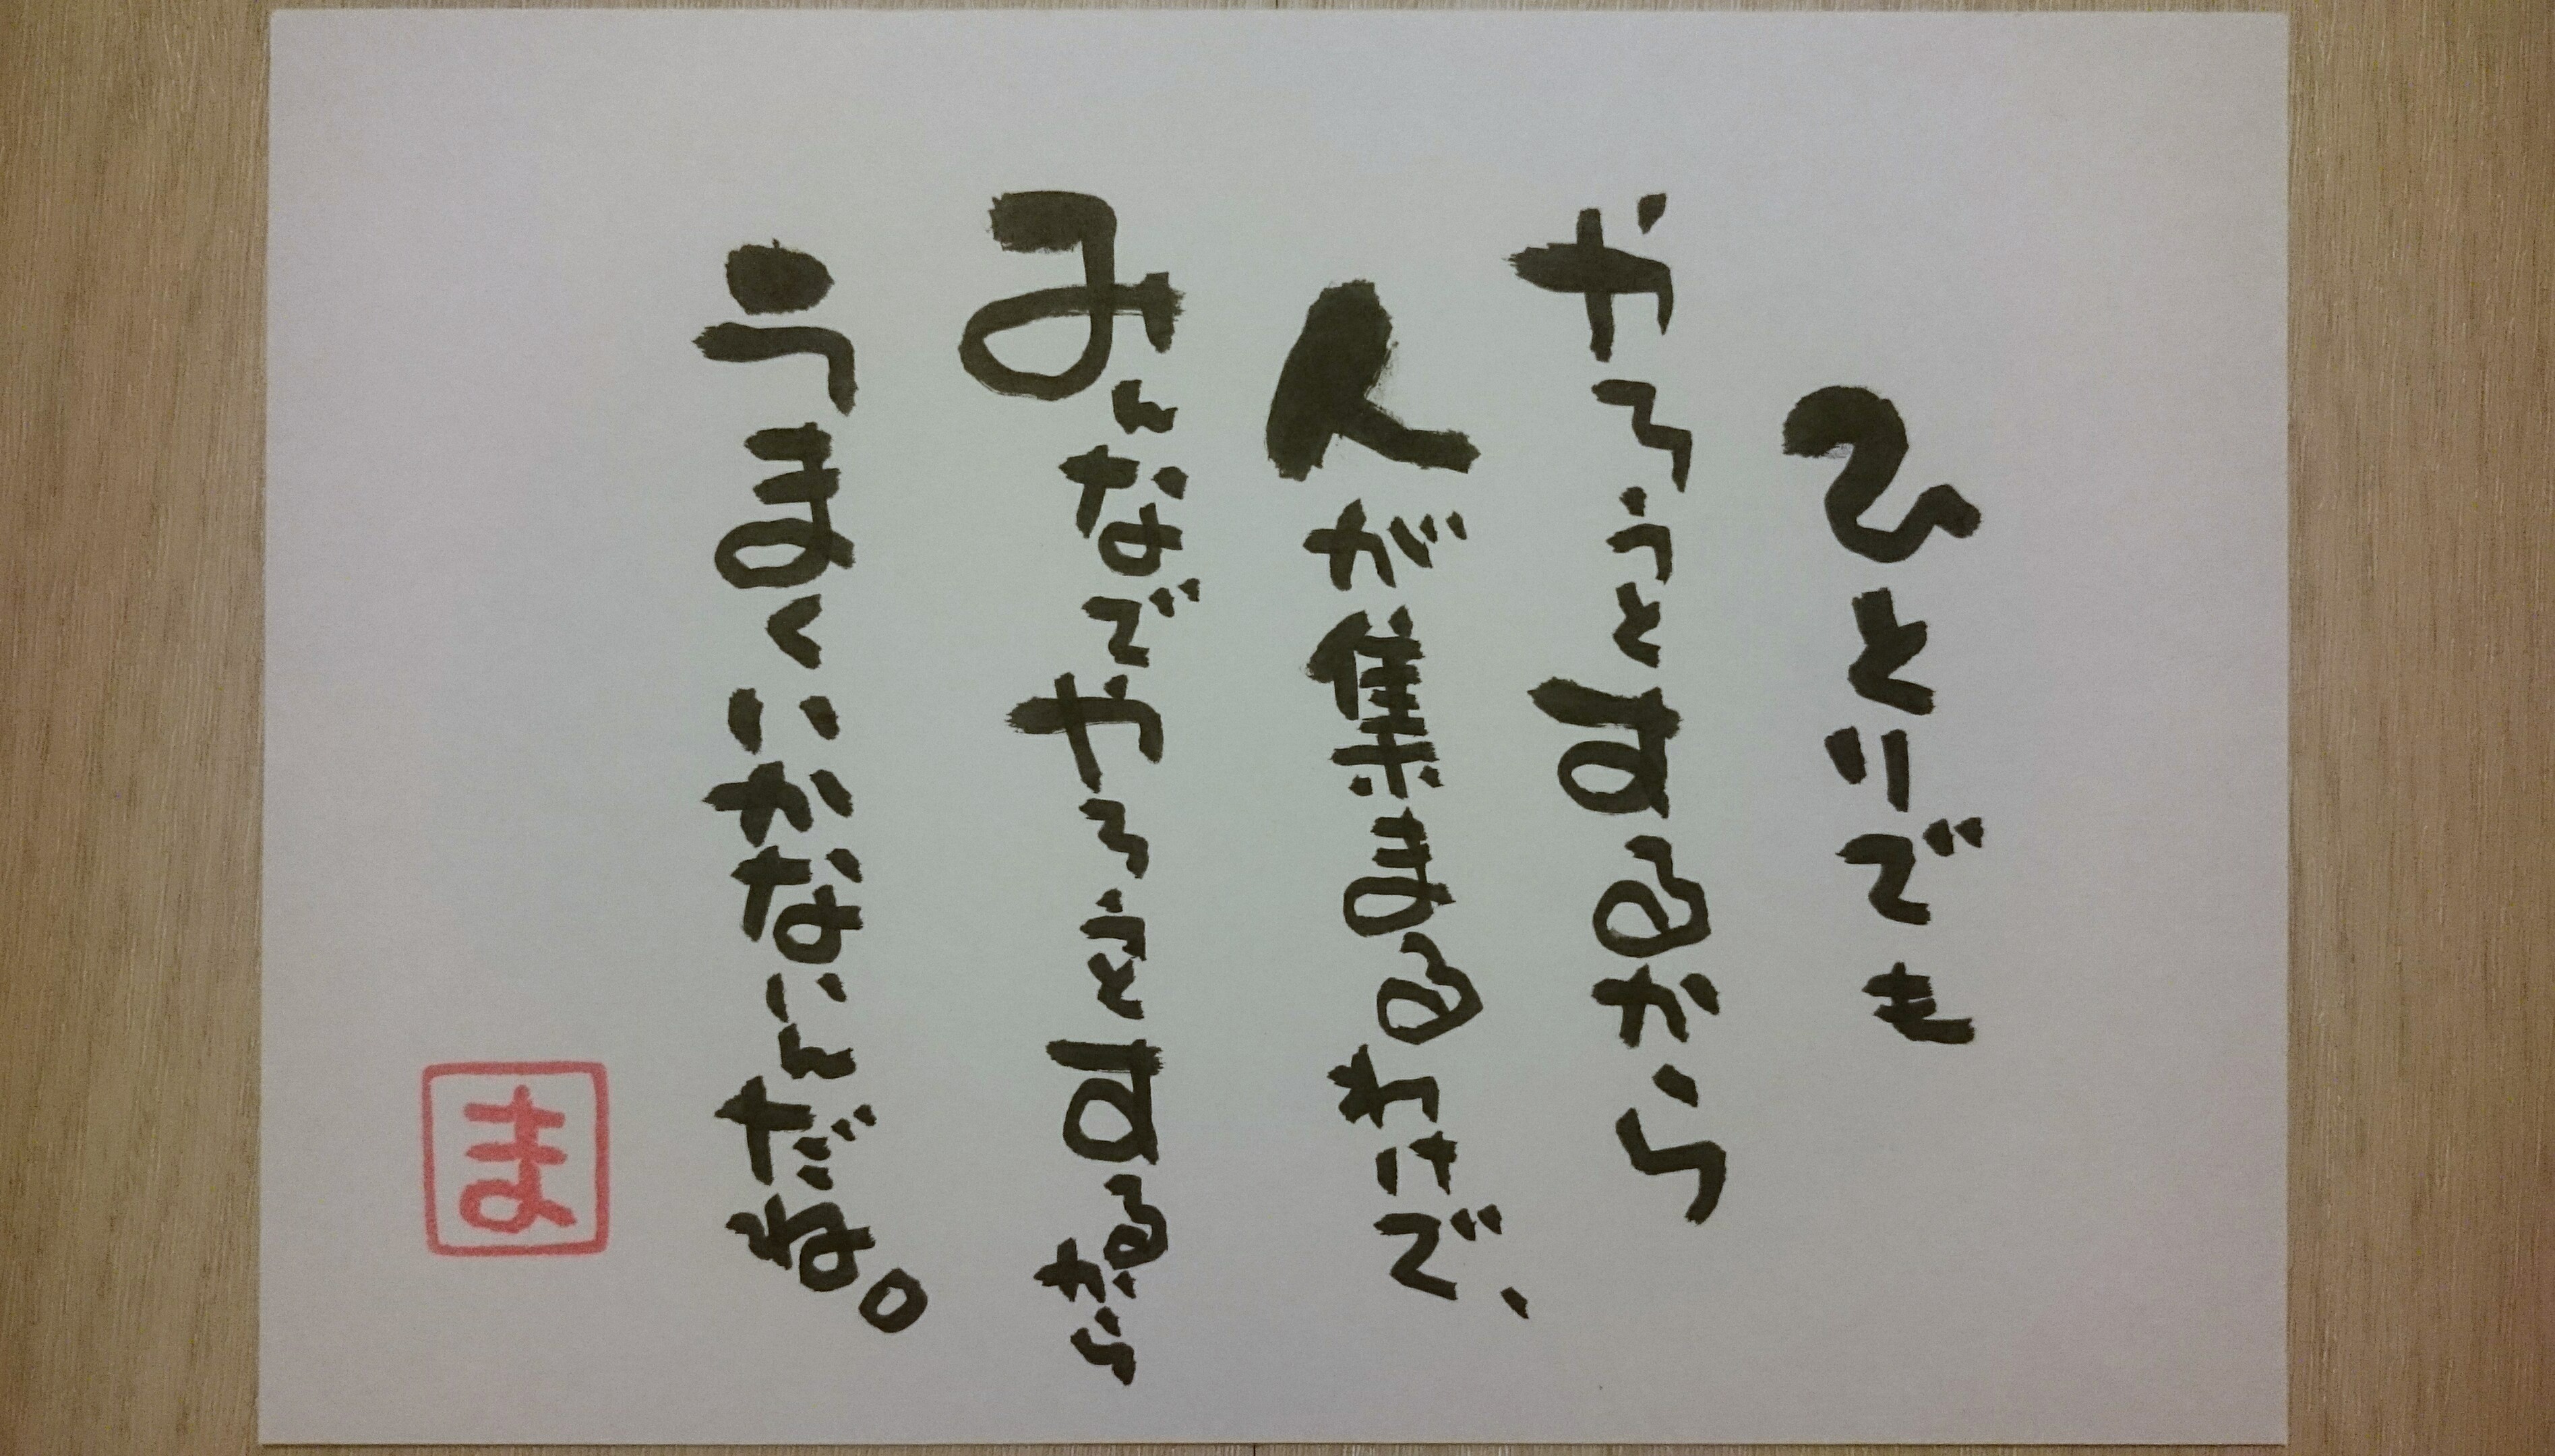 ひとりでも
やろうとするから
人が集まるわけで、
みんなでやろうとするから
うまくいかないんだね。
ま